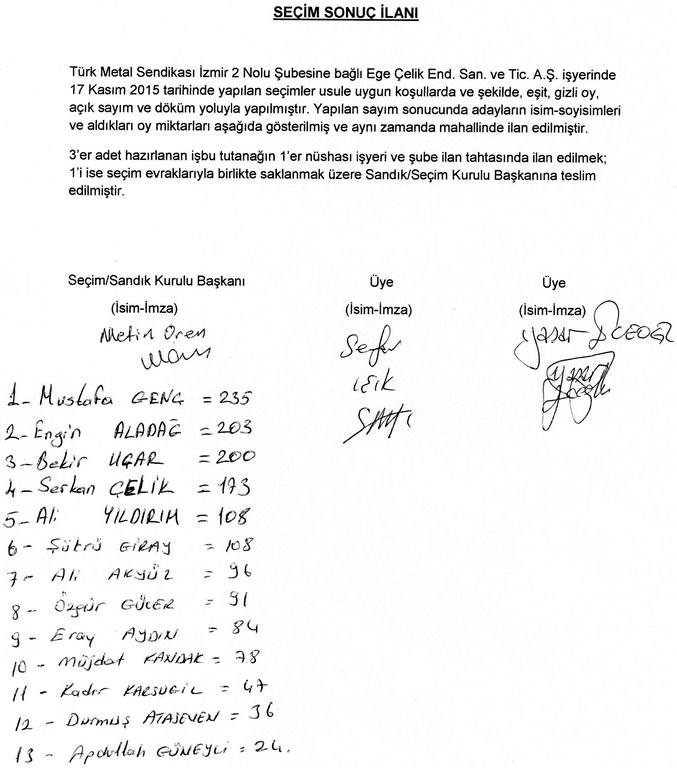 SEÇİM SONUÇ İLANI
Türk Metal Sendikası İzmir 2 Nolu Şubesine bağlı Ege Çelik End. San. ve Tic. A.Ş. işyerinde
17 Kasım 2015 tarihinde yapılan seçimler usule uygun koşullarda ve şekilde, eşit, gizli oy,
açık sayım ve döküm yoluyla yapılmıştır. Yapılan sayım sonucunda adayların isim-soyisimleri
ve aldıkları oy miktarları aşağıda gösterilmiş ve aynı zamanda mahallinde ilan edilmiştir.
3'er adet hazırlanan işbu tutanağın 1'er nüshası işyeri ve şube ilan tahtasında ilan edilmek;
1'i ise seçim evraklarıyla birlikte saklanmak üzere Sandık/Seçim Kurulu Başkanına teslim
edilmiştir.
Seçim/Sandık Kurulu Başkanı
(İsim-İmza)
Metin Ören
Üye
(İsim-İmza)
Sefer
IŞIK
Üye
(İsim-İmza)
Yaşar
1- Mustafa GENÇ = 235
2- Engin ALADAĞ = 203
3- Bekir UÇAR = 200
4- Serkan ÇELİK = 173
5- Ali YILDIRIM = 108
6- Şükrü GİRAY = 108
7- Ali AKYÜZ = 96
8- Özgür GÜCER = 91
9- Eray AYDIN = 84
10- Müjdat KANDAK = 78
11- Kadir KARSUGİL = 47
12- Durmuş ATASEVEN = 36
13- Apdullah GÜNEYLİ = 24.